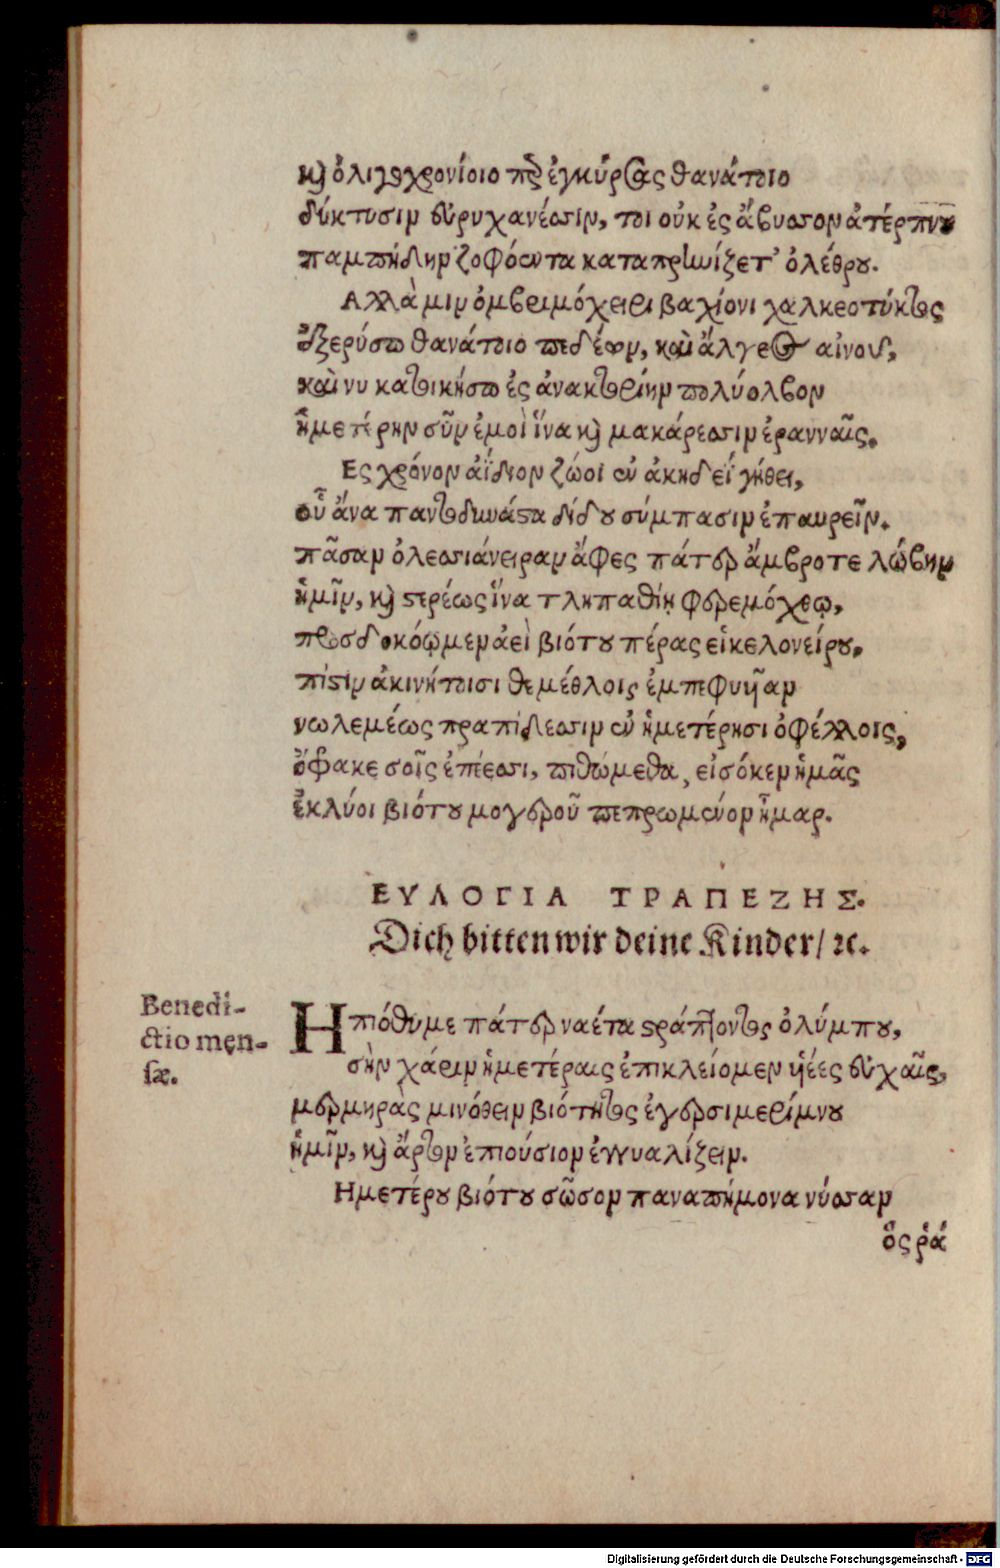 καὶ ὀλιγοχρονίοιο περ ἐγκύρσας θανάτοιο
δύκτυσιν εὐρυχανέσσιν, τοι οὐκ ἐς ἄβυσσον ἀτέρπνου
παμπήδην ζοφόωντα καταπρηνίζετ' ὀλέθρου.
Ἀλλὰ μιν ὀμβριμόχειρι βαχίονι χαλκεοτύκτως
ἐξερύσω θανάτοιο πεδέων, καὶ ἄλγεος αἰνοῦ,
καὶ νυ κατοικήσω ἐς ἀνακτορίην πολύολβον
ἡμετέρην σῦν ἐμοὶ ἵνα καὶ μακάρεσσιν ἐραννᾶις.
Ες χρόνον ἀΐδιον ζώοι ἐν ἀκηδέϊ γήθει,
οὗ ἄνα παντοδυνάστα δίδου σύμπασιν ἐπαυρεῖν.
πᾶσαν ὀλεσσιάνειραν ἄφες πάτερ ἄμβροτε λώβην
ἡμῖν, καὶ στερέως ἵνα τληπαθίῃ φερεμόχθῳ,
προσδοκόῳμεν ἀεὶ βιότου πέρας εἰκελονείρου.
πίστιν ἀκινήτοισι θεμέθλοις ἐμπεφυυῖαν
νωλεμέως πραπίδεσσιν ἐν ἡμετέρησι ὀφέλλοις,
ὄφρακε σοῖς ἐπέεσσι, πιθώμεθα, εἰσόκεν ἡμᾶς
ἐκλύοι βιότου μογεροῦ πεπρωμένον ἦμαρ.
ΕΥΛΟΓΙΑ ΤΡΑΠΕΖΗΣ.
Dich bitten wir deine Kinder/ ꝛc.
Benedi-
ctio men-
sæ.
Ηπιόθυμε πάτερ ναέτα στράπτοντος ὀλύμπου,
σὴν χάριν ἡμετέραις ἐπικλείομεν υἱέες εὐχαῖς,
μερμηρὰς μινόθειν βιότητος ἐγερσιμερίμνου
ἡμῖν, καὶ ἄρτον ἐπιούσιον ἐγγυαλίζειν.
Ημετέρου βιότου σῶσον παναπήμονα νύσσαν
ὅς ῥά
Digitalisierung gefördert durch die Deutsche Forschungsgemeinschaft - DFG